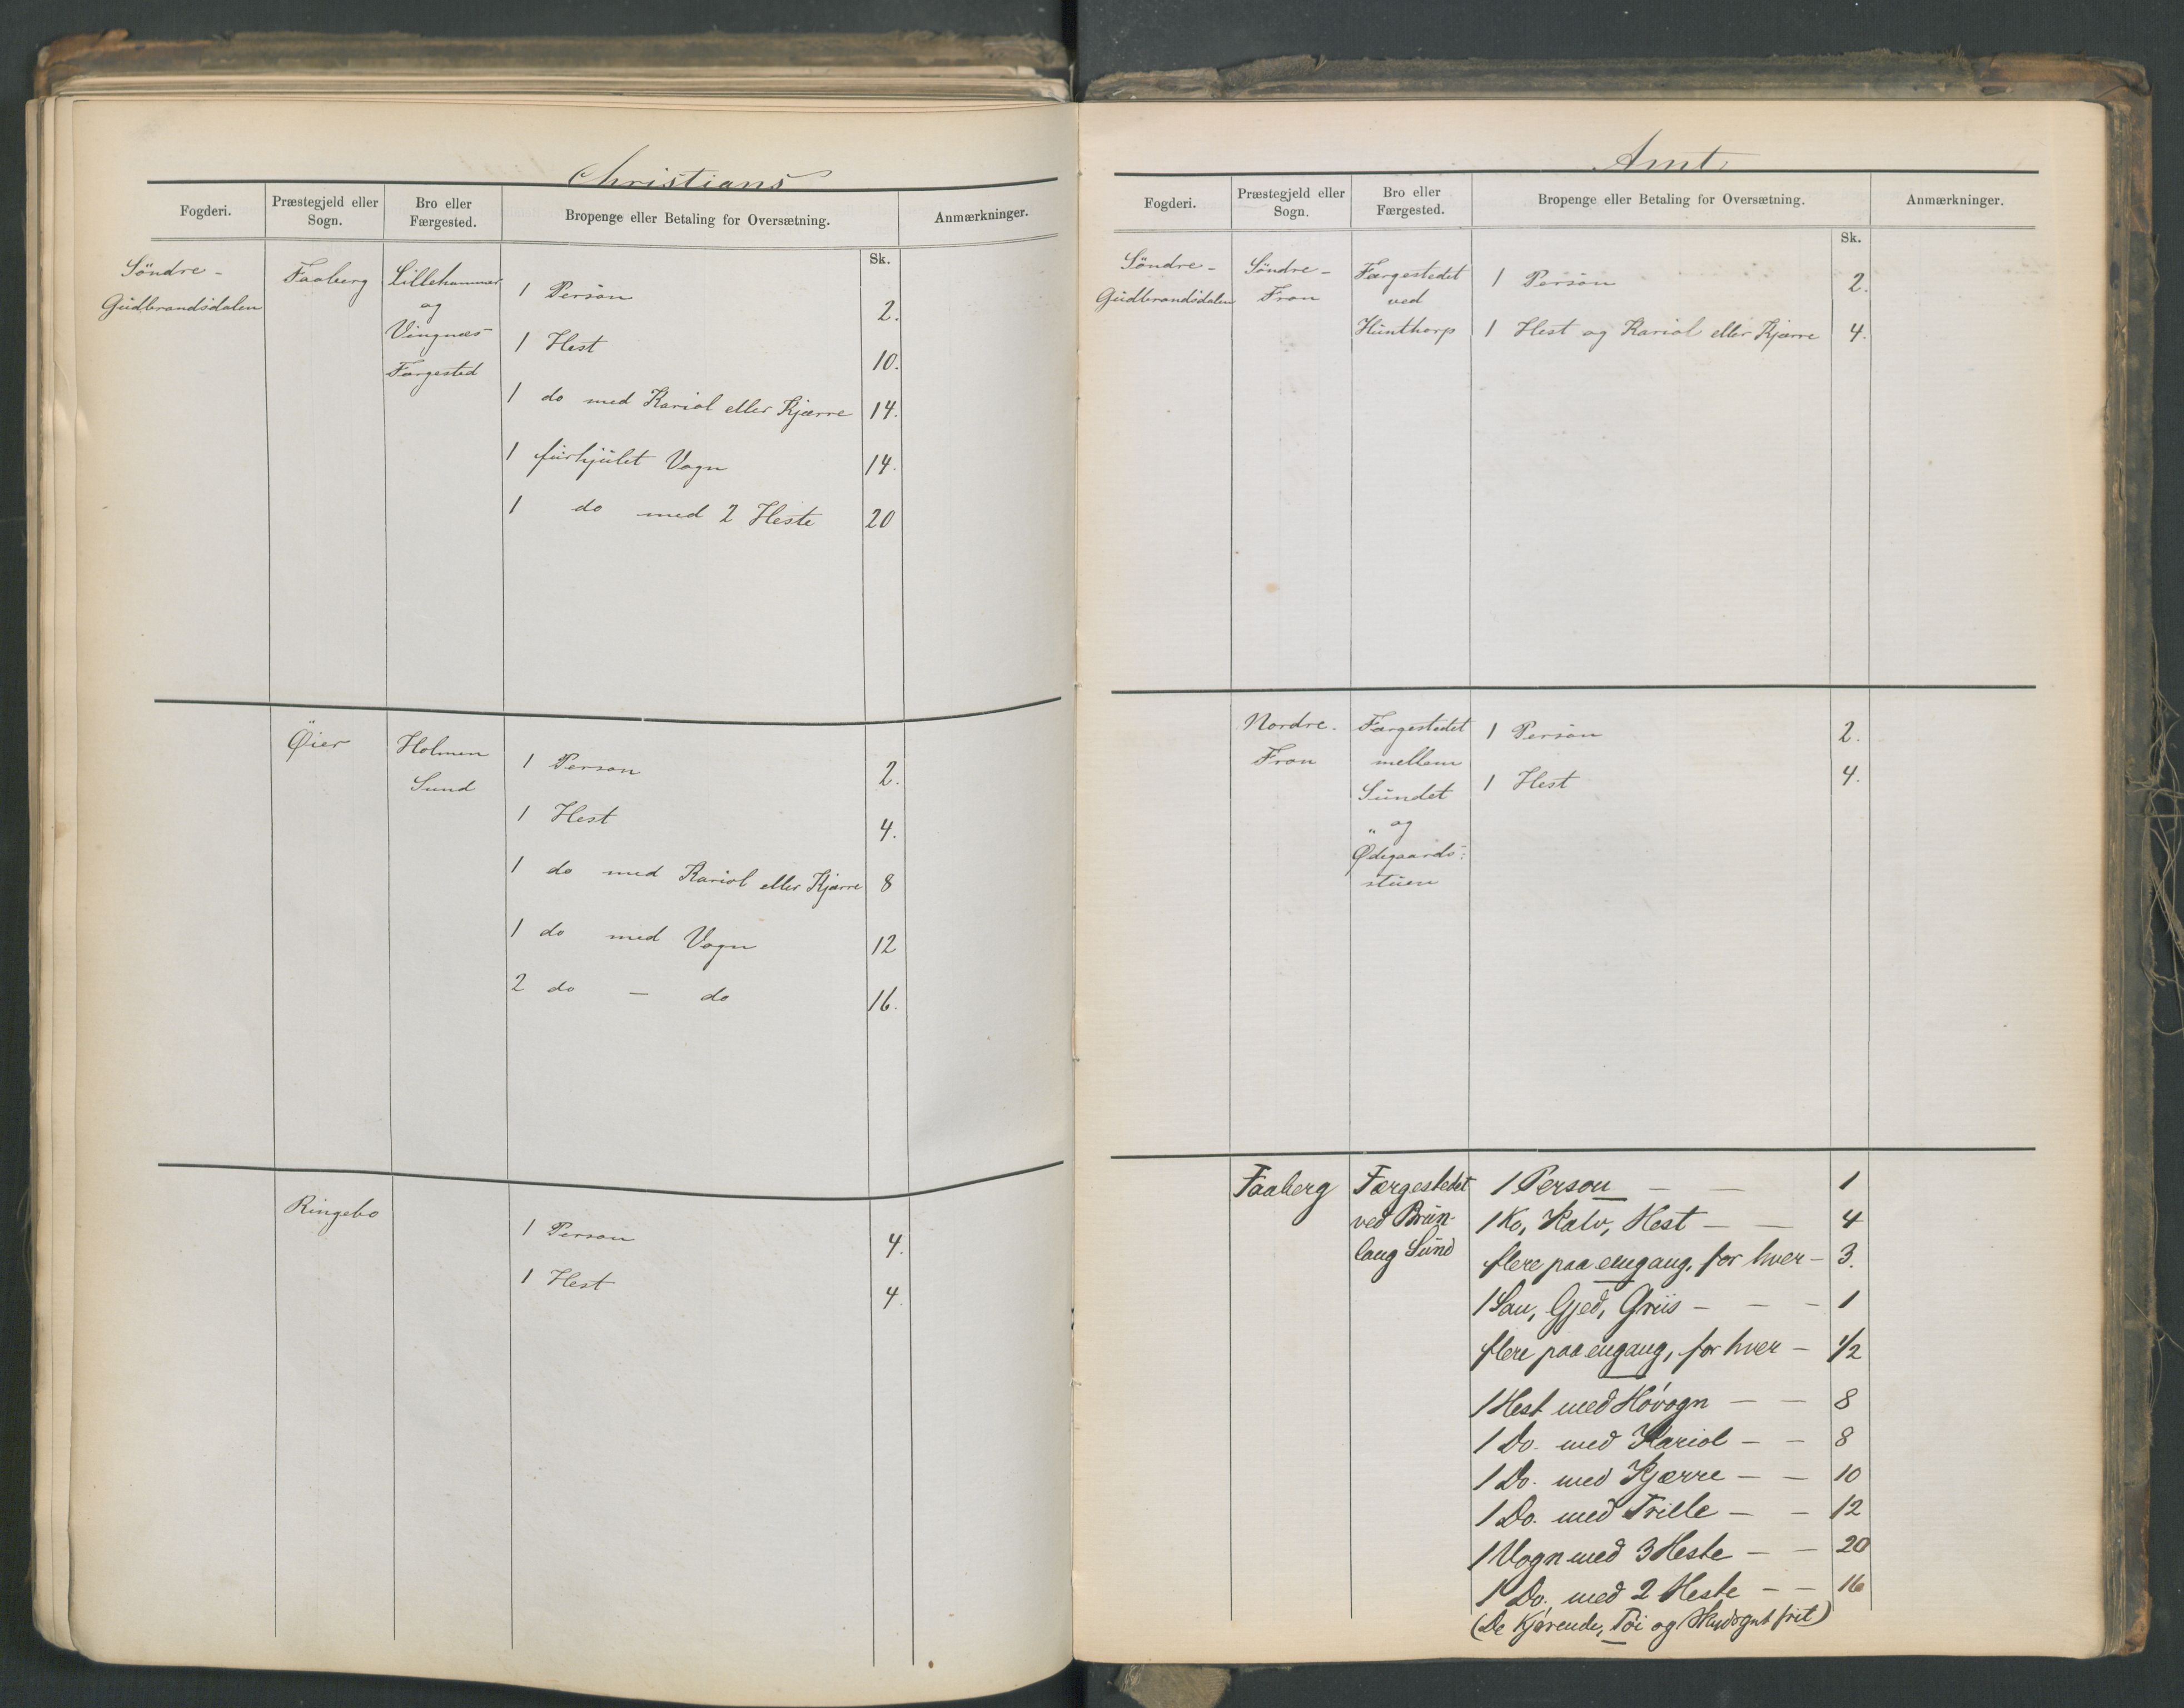 Christians
Fogderi.
Præstegjeld eller
Sogn.
Bro eller
Færgested.
Bropenge eller Betaling for Oversætning.
Anmærkninger.
Sk.
Söndre-
Gudbrandsdalen
Faaberg
Lillehammer
og
Vingnæs
Færgested
1 Person 2.
1 Hest 10.
1 do med Kariol eller Kjærre 14.
1 fiirhjulet Vogn 14.
1 do med 2 Heste 20
Øier
Holmen
Sund
1 Person 2.
1 Hest 4.
1 do med Kariol eller Kjærre 8
1 do med Vogn 12
2 do — do 16.
Ringebo
1 Person 4.
1 Hest 4.
Amt
Fogderi.
Præstegjeld eller
Sogn.
Bro eller
Færgested.
Bropenge eller Betaling for Oversætning.
Anmærkninger.
Sk.
Söndre-
Gudbrandsdalen
Söndre-
Fron
Færgestedet
ved
Hunthorp
1 Person 2.
1 Hest og Kariol eller Kjærre 4.
Nordre-
Fron
Færgestedet
mellem
Sundet
„ og
Ødegaards-
stuen
1 Person 2.
1 Hest 4.
Faaberg
Færgestedet
ved Brun-
laug Sund
1 Person — — 1
1 Ko, Kalv, Hest — — 4
flere paa engang, for hver — 3.
1 Sau, Gjed, Griis — — — 1
flere paa engang, for hver — 1/2
1 Hest med Høvogn — — 8
1 Do. med Kariol — — 8
1 Do. med Kjærre — — 10
1 Do. med Trille — — 12
1 Vogn med 3 Heste — — 20
1 Do. med 2 Heste — — 16
(De Kjørende, Töi og frit)